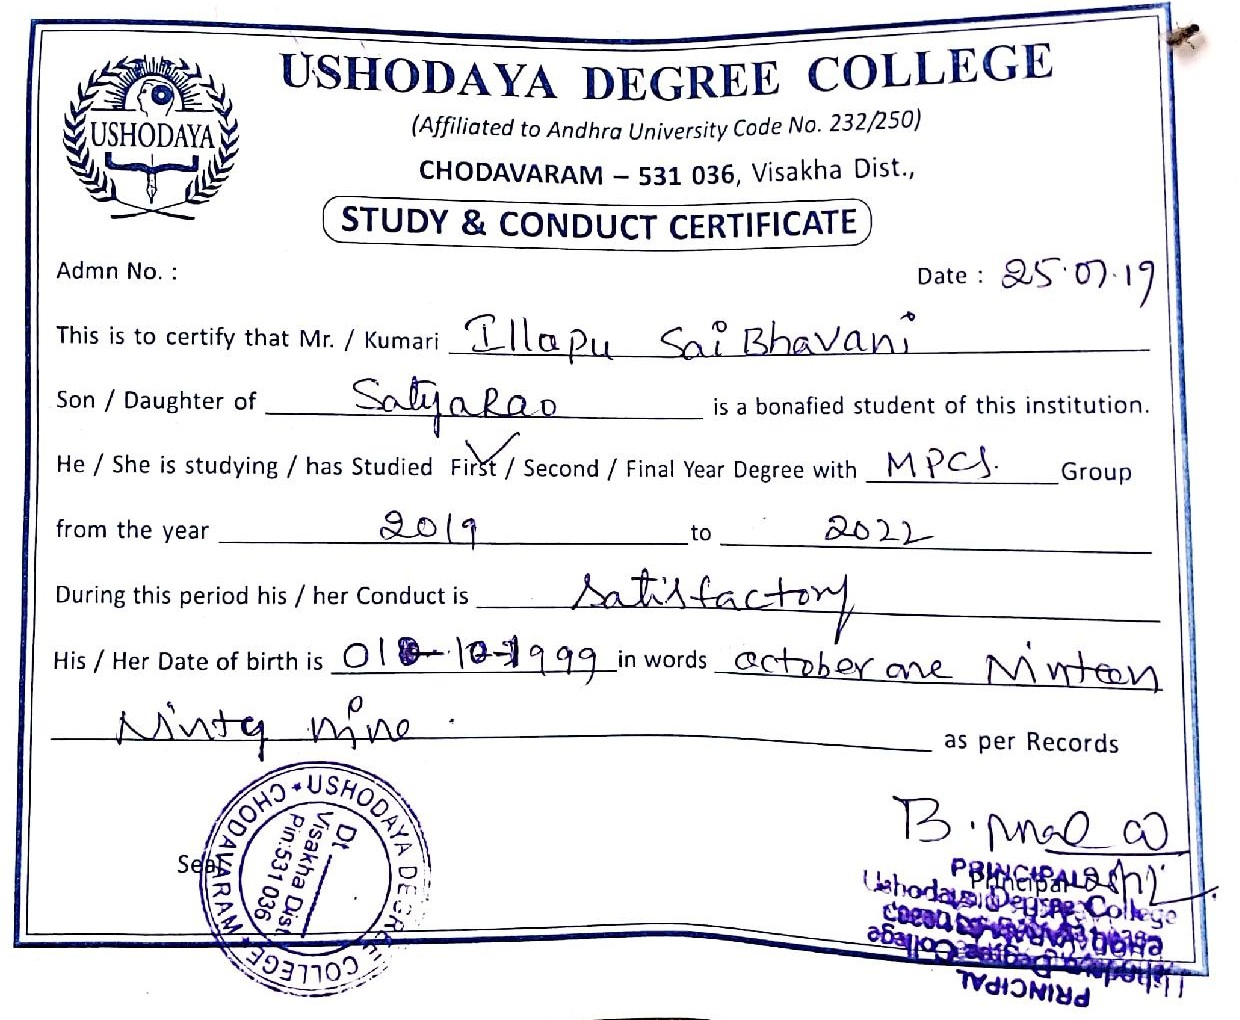 USHODAYA DEGREE COLLEGE
USHODAYA
(Affiliated to Andhra University Code No. 232/250)
CHODAVARAM – 531 036, Visakha Dist.,
STUDY & CONDUCT CERTIFICATE
Admn No. : Date : 25.07.19
This is to certify that Mr. / Kumari Illapu Sai Bhavani
Son / Daughter of SatyaRao is a bonafied student of this institution.
He / She is studying / has Studied First / Second / Final Year Degree with MPCs. Group
from the year 2019 to 2022
During this period his / her Conduct is satisfactory
His / Her Date of birth is 01-10-1999 in words october one Ninteen
Ninty nine. as per Records
Seal
USHODAYA DEGREE COLLEGE * CHODAVARAM *
Dt
Visakha Dist
Pin:531 036
B.
PRINCIPAL
Principal
Ushodaya Degree College
PRINCIPAL